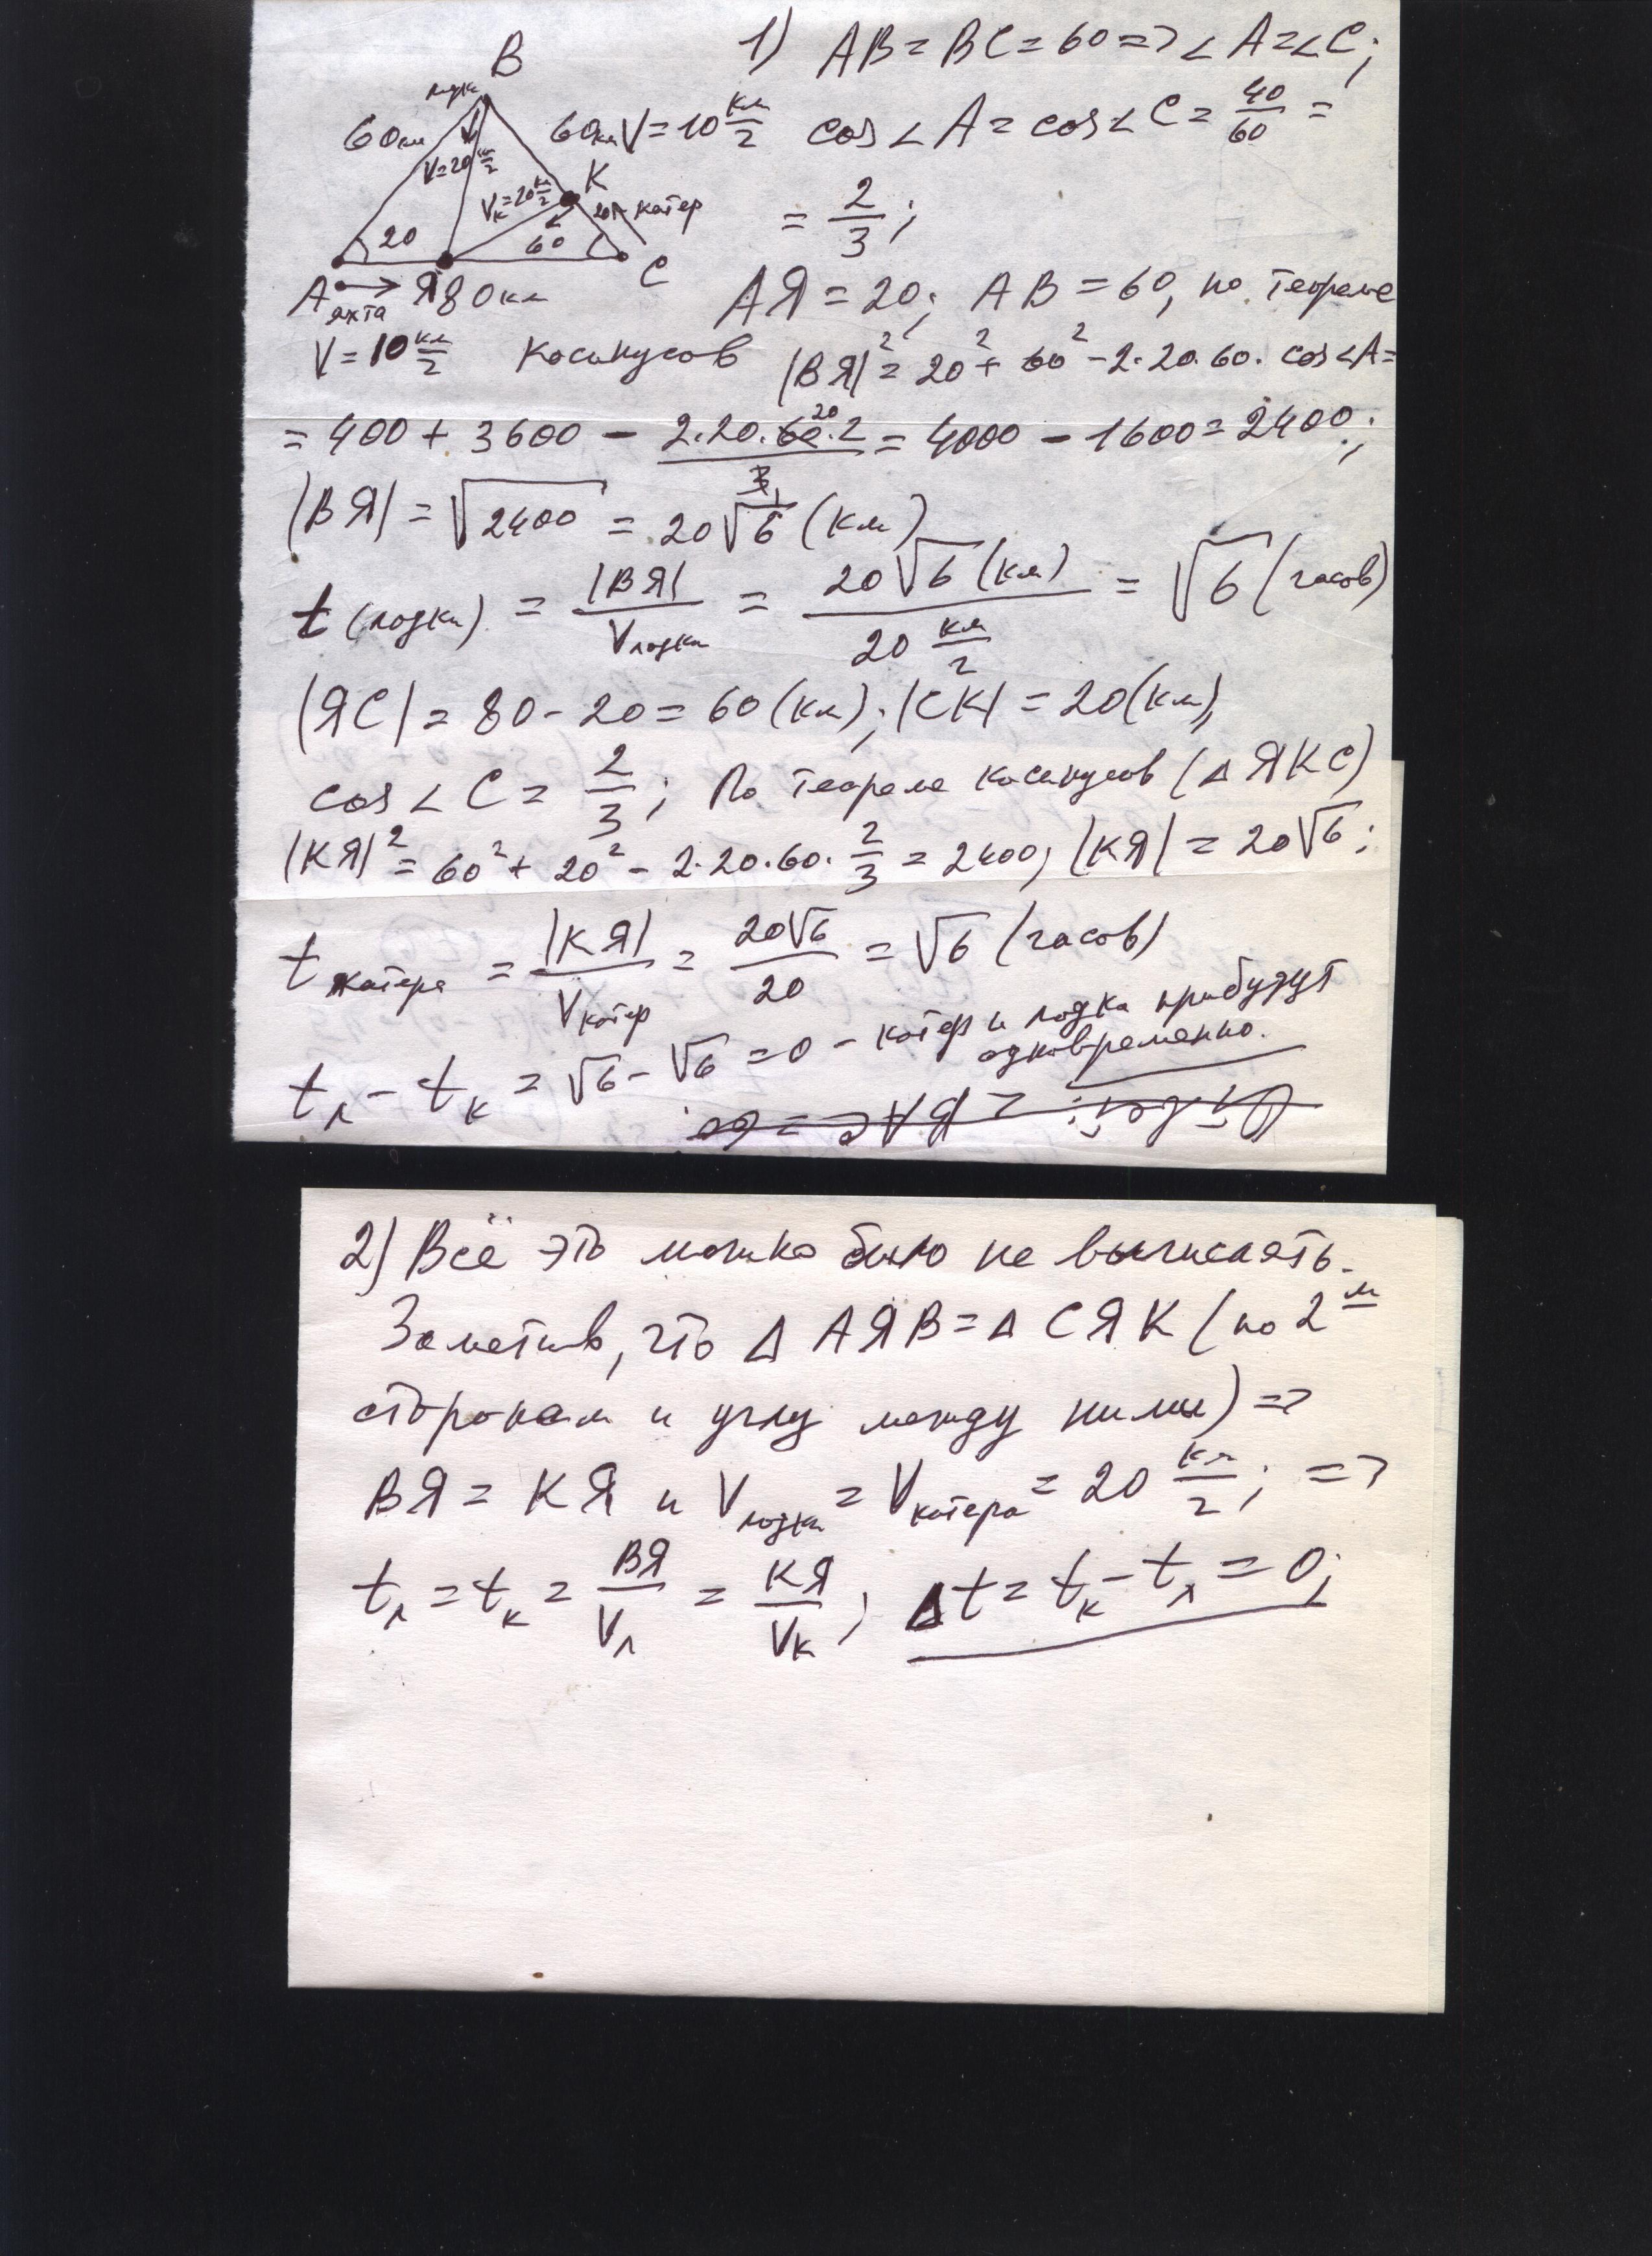 B
лодка
60км
60км V=10 км/г
V=20 км/г
Vк=20 км/г
K
20 - катер
20
60
A Я 80км C
яхта
V=10 км/г
1) AB=BC=60=> ∠A=∠C;
cos∠A=cos∠C= 40/60 =
= 2/3 ;
AЯ=20; AB=60, по теореме
косинусов |BЯ|²=20²+60²-2·20·60·cos∠A=
=400+3600- 2·20·60·2/3 =4000-1600=2400;
|BЯ|=√2400=20√6(км)
t(лодки) = |BЯ|/Vлодки = 20√6(км)/20 км/г = √6(часов)
|ЯC|=80-20=60(км); |CK|=20(км),
cos∠C= 2/3 ; По теореме косинусов (Δ ЯKC)
|KЯ|²=60²+20²-2·20·60· 2/3 =2400; |KЯ|=20√6;
tкатера = |KЯ|/Vкатер = 20√6/20 = √6 (часов)
tл - tк = √6-√6=0 - катер и лодка прибудут
одновременно.
2) Всё это можно было не вычислять.
Заметив, что Δ AЯB=Δ CЯK (по 2м
сторонам и углу между ними)=>
BЯ=KЯ и Vлодки=Vкатера=20 км/г; =>
tл=tк= BЯ/Vл = KЯ/Vк ; Δt=tк-tл=0;